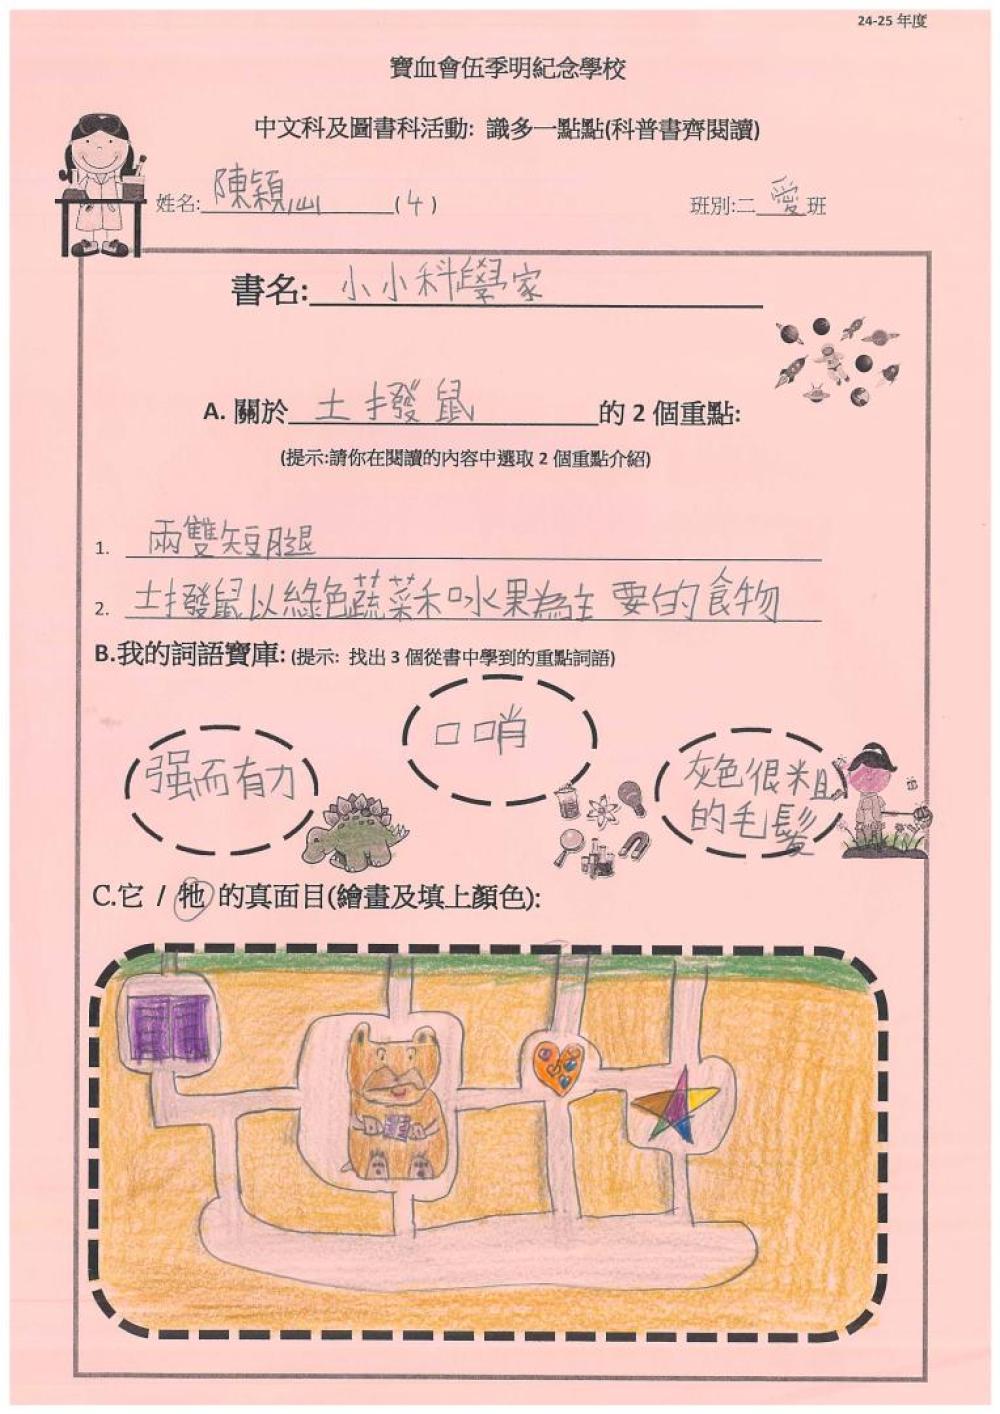 24-25 年度
寶血會伍季明紀念學校
中文科及圖書科活動: 識多一點點(科普書齊閱讀)
姓名: 陳穎 (4) 班別:二 愛 班
書名: 小小科學家
A. 關於 土撥鼠 的 2 個重點:
(提示:請你在閱讀的內容中選取 2 個重點介紹)
1. 兩雙短腿
2. 土撥鼠以綠色蔬菜和水果為主要的食物
B.我的詞語寶庫: (提示: 找出 3 個從書中學到的重點詞語)
口哨
强而有力
灰色很粗
的毛髮
C.它 / 牠 的真面目(繪畫及填上顏色):